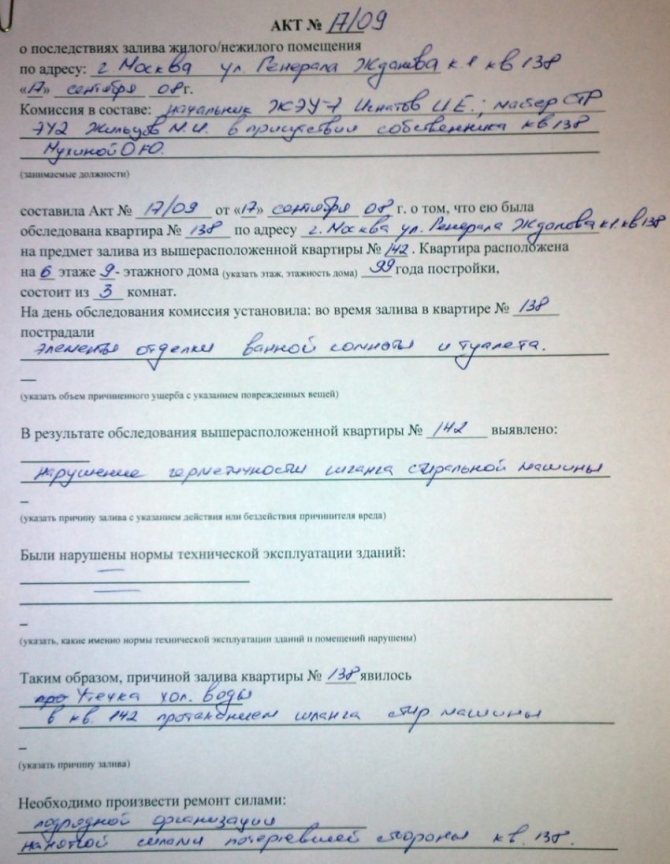 АКТ № 17/09
о последствиях залива жилого/нежилого помещения
по адресу: г Москва ул. Генерала Жданова к 1 кв 138
«17» сентября 08 г.
Комиссия в составе: начальник ЖЭУ-7 Игнатов И Е.; мастер СТР
ЭУ2 Жильцов М.И. в присутствии собственника кв 138
Мухиной О Ю.
(занимаемые должности)
составила Акт № 17/09 от «17» сентября 08 г. о том, что ею была
обследована квартира № 138 по адресу г. Москва ул. Генерала Жданова к 1 кв 138
на предмет залива из вышерасположенной квартиры № 142. Квартира расположена
на 6 этаже 9- этажного дома (указать этаж, этажность дома) 99 года постройки,
состоит из 3 комнат.
На день обследования комиссия установила: во время залива в квартире № 138
пострадали
элементы отделки ванной комнаты и туалета.
(указать объем причиненного ущерба с указанием поврежденных вещей)
В результате обследования вышерасположенной квартиры № 142 выявлено:
нарушение герметичности шланга стиральной машины
(указать причину залива с указанием действия или бездействия причинителя вреда)
Были нарушены нормы технической эксплуатации зданий:
(указать, какие именно нормы технической эксплуатации зданий и помещений нарушены)
Таким образом, причиной залива квартиры № 138 явилось
утечка хол. воды
в кв. 142 протеканием шланга стир. машины
(указать причину залива)
Необходимо произвести ремонт силами:
подрядной организации
нанятой силами потерпевшей стороны кв. 138.